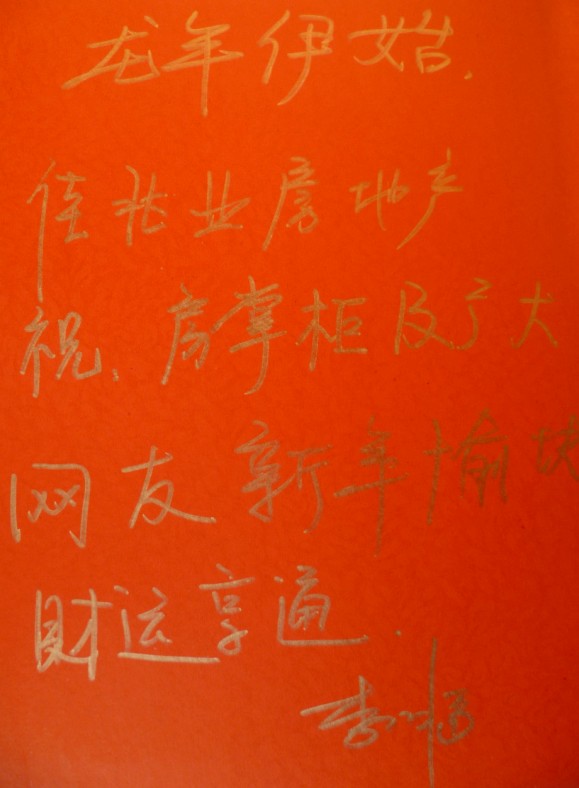 龙年伊始,
佳兆业房地产
祝、房掌柜及广大
网友新年愉快
财运享通.